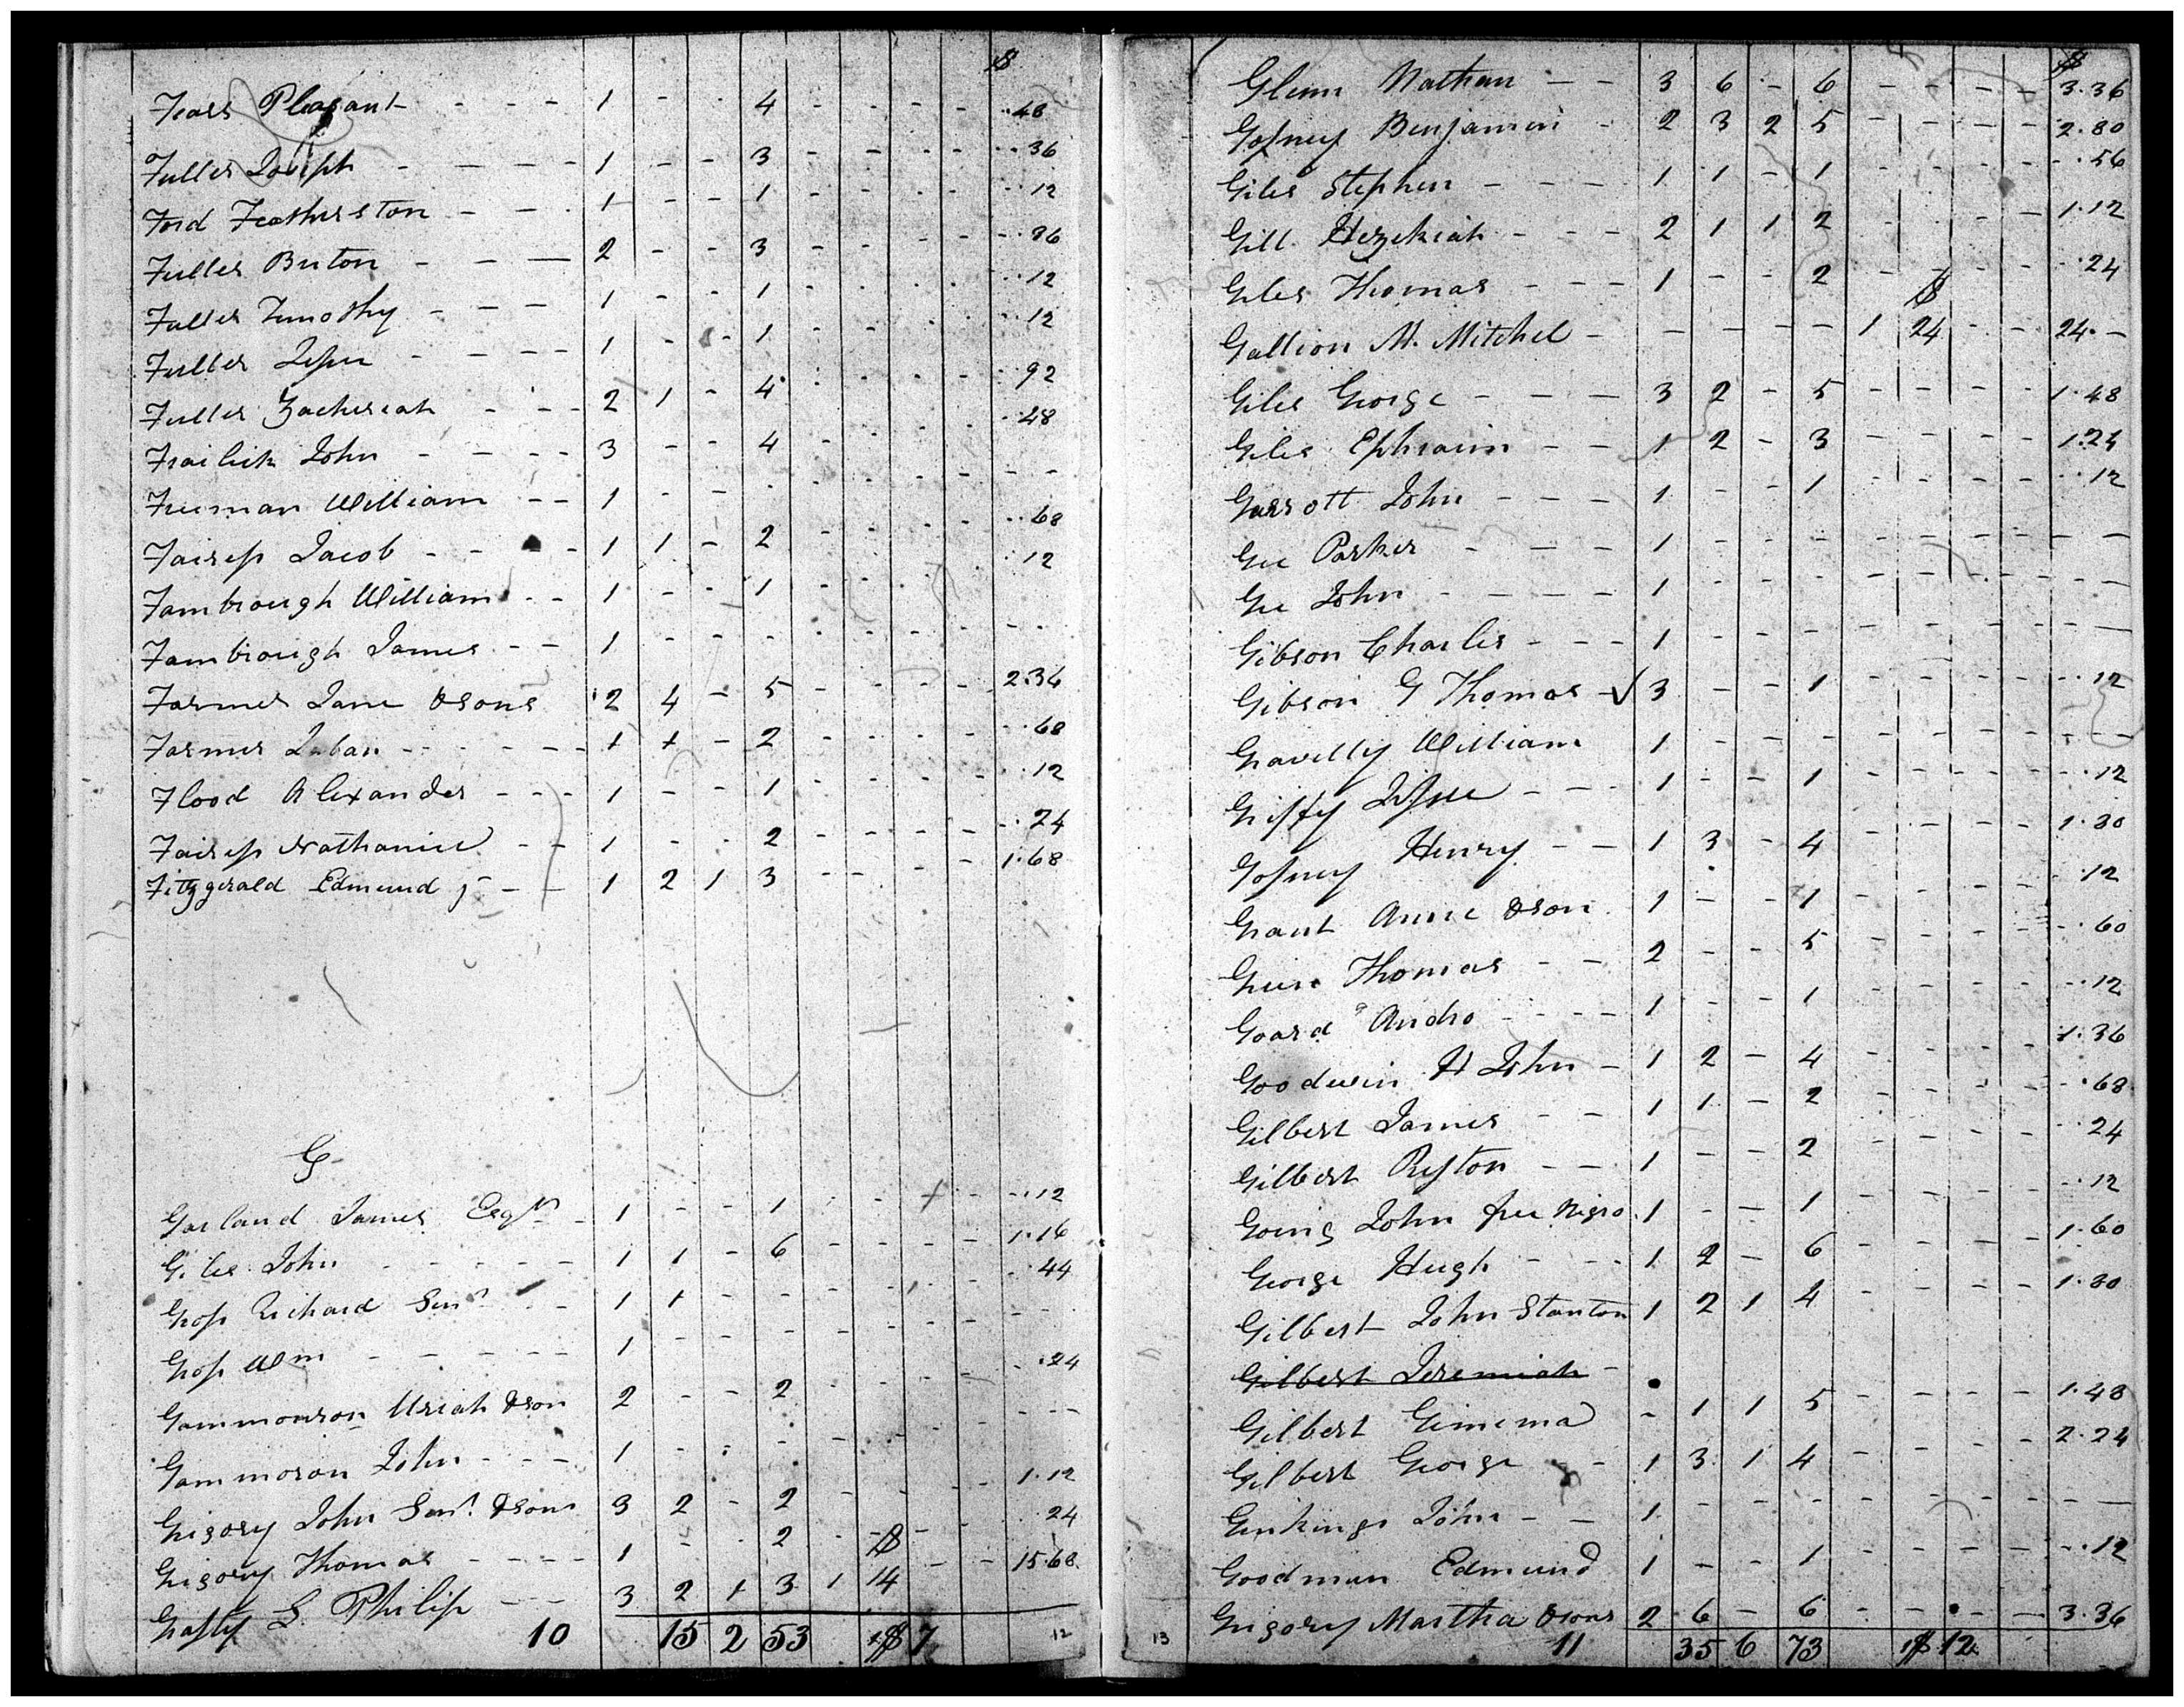 $
Fears Pleasant - - - - 1 - - 4 - - - - ..48
Fuller Joseph - - - - 1 - - 3 - - - - ..36
Ford Featherston - - . 1 - - 1 - - - - ..12
Fuller Briton - - — 2 - - 3 - - - - ..36
Fuller Timothy - - - 1 - - 1 - - - - ..12
Fuller Jesse - - - - 1 - - 1 - - - - ..12
Fuller Zacheriah - - - 2 1 - 4 - - - - ..92
Frailick John - - - - 3 - - 4 - - - - ..48
Freeman William - - 1 - - - - - - - - -
Fairess Jacob - - - - 1 1 - 2 - - - - ..68
Fambrough William - - 1 - - 1 - - - - ..12
Fambrough James - - 1 - - - - - - - - -
Farmer Jane & sons 2 4 - 5 - - - - 2.36
Farmer Laban - - - - 1 1 - 2 - - - - ..68
Flood Alexander - - - 1 - - 1 - - - - ..12
Fairess Nathaniel - - 1 - - 2 - - - - ..24
Fitzgerald Edmund jr - - 1 2 1 3 - - - - 1.68
G
Garland James Esqr - 1 - - 1 - - - - ..12
Giles John - - - - - 1 1 - 6 - - - - 1.16
Goss Richard Senr - - 1 1 - - - - - - ..44
Goss Wm - - - - - 1 - - - - - - - -
Gammonson Uriah & son 2 - - 2 - - - - ..24
Gammoson John - - - 1 - - - - - - - - -
Grigory John Senr & sons 3 2 - 2 - - - - 1.12
Grigory Thomas - - - - 1 - - 2 - $ - - ..24
Grasty S. Philip - - - 3 2 1 3 1 14 - - 15.68
10 15 2 53 1$7 12
$
Glenn Nathan - - 3 6 - 6 - - - - 3.36
Gosney Benjamin - 2 3 2 5 - - - - 2.80
Giles Stephen - - - 1 1 - 1 - - - - ..56
Gill Hezekiah - - - 2 1 1 2 - - - - 1.12
Giles Thomas - - - 1 - - 2 - $ - - ..24
Gallion M. Mitchel - - - - - 1 24 - - 24.-
Giles George - - - 3 2 - 5 - - - - 1.48
Giles Ephraim - - 1 2 - 3 - - - - 1.24
Garrott John - - - 1 - - 1 - - - - ..12
Gee Parker - - - 1 - - - - - - - —
Gee John - - - - 1 - - - - - - - —
Gibson Charles - - - 1 - - - - - - - —
Gibson G Thomas -√ 3 - - 1 - - - - ..12
Gravelly William 1 - - - - - - - - -
Griffy Jesse - - - 1 - - 1 - - - - ..12
Gosney Henry - - 1 3 - 4 - - - - 1.80
Grant Anne & son 1 - - 1 - - - - ..12
Green Thomas - - 2 - - 5 - - - - ..60
Goard Andro - - - - 1 - - 1 - - - - ..12
Goodwin H John - 1 2 - 4 - - - - 1.36
Gilbert James - - 1 1 - 2 - - - - ..68
Gilbert Preston - - 1 - - 2 - - - - ..24
Going John free Negro 1 - - 1 - - - - ..12
George Hugh - - - 1 2 - 6 - - - - 1.60
Gilbert John Stanton 1 2 1 4 - - - - 1.80
Gilbert Jeremiah -
Gilbert Gimema - 1 1 5 - - - - 1.48
Gilbert George - 1 3 1 4 - - - - 2.24
Genkings John - - 1 - - - - - - - —
Goodman Edmund 1 - - 1 - - - - ..12
Grigory Martha & sons 2 6 - 6 - - - - 3.36
13 11 35 6 73 1$12